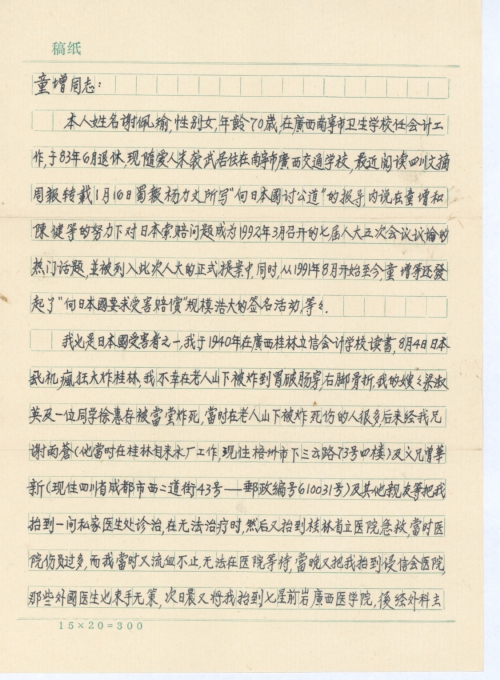 稿纸
童增同志:
本人姓名谢佩瑜,性别女,年龄70歲,在廣西南寧市卫生学校任会计工
作,于83年6月退休,现随爱人朱敬武居住在南寧市廣西交通学校,最近阅读四川文摘
周报转载1月16日蜀报杨力文所写"向日本國讨公道"的报导,内说在童增和
陳健等的努力下对日本索赔问题成为1992年3月召开的七届人大五次会议议論的
热门话题,並被列入此次人大的正式提案中同时,从1991年8月开始至今,童增等还發
起了"向日本國要求受害赔償"规模浩大的签名活动,等々.
我也是日本國受害者之一,我于1940年在廣西桂林立信会计学校读書,8月4日日本
飛机,瘋狂大炸桂林,我不幸在老人山下被炸到胃破肠穿,右脚骨折,我的嫂々梁淑
英及一位同学徐惠存被當堂炸死,當时在老人山下被炸死伤的人很多后来经我兄
谢雨蒼(他當时在桂林自来水厂工作,现住梧州市下三云路73号四楼)及义兄曾華
新(现住四川省成都市西二道街43号——郵政编号610031号)及其他親友等把我
抬到一间私家医生处诊治,在无法治疗时,然后又抬到桂林省立医院急救,當时医
院伤员过多,而我當时又流血不止,无法在医院等待,當晚又把我抬到浸信会医院,
那些外國医生也束手无策,次日晨又将我抬到七星前岩廣西医学院,後经外科主
15×20=300